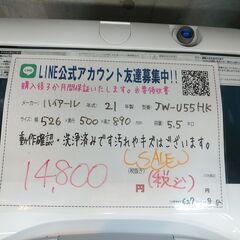 LINE公式アカウント友達募集中!!
購入後3か月間保証いたします。※要領収書
メーカー:ハイアール 年式:21 型式:JW-U55HK
サイズ:幅526×奥500×高890mm 容量:5.5キロ
動作確認・洗浄済みです汚れやキズはございます。
14,800
(税抜き)
CSALEN
(税込)